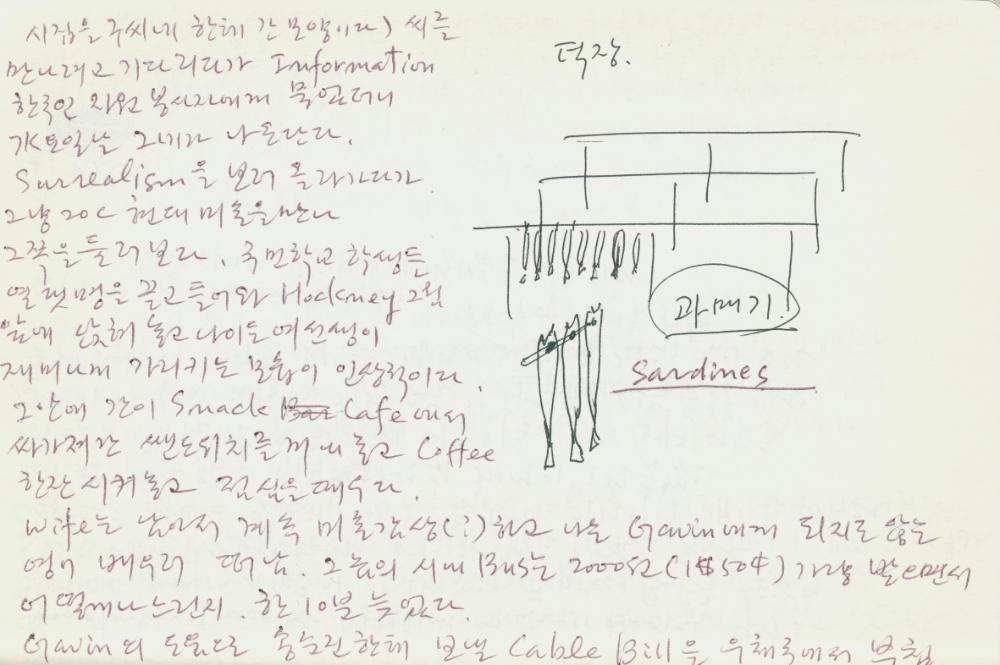 시집을 구씨네 한테 간 모양이다) 씨를
만나려고 기다리다가 Information
한국인 자원 봉사자에게 물었더니
가 나온단다.
Surrealism을 보러 올라가다가
그냥 20C 현대 미술을 만나
그쪽을 둘러보다. 국민학교 학생들
열 댓명을 끌고 들어와 Hockney 그림
앞에 앉혀 놓고 나이든 여선생이
재미나게 가리키는 모습이 인상적이다.
그 안에 간이 Snack Bar Cafe에서
싸가져간 쌘드위치를 꺼내 놓고 Coffee
한잔 시켜놓고 점심을 때우다.
Wife는 남아서 계속 미술감상(?)하고 나는 Gavin에게 되지도 않는
영어 배우러 떠남. 그놈의 시내 Bus는 (1$50¢) 가량 받으면서
어떻게나 느린지. 한 10분 늦었다.
Gavin의 도움으로 한테 보낼 Cable Bill을 우체국에서 부침
덕장.
과메기!
Sardines